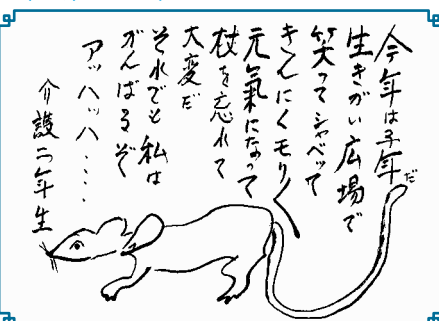 今年は子年だ
生きがい広場で
笑ってシャベって
きんにくモリ〱
元氣になって
杖を忘れて
大変だ
それでも私は
がんばるぞ
アッハッハ・・・・
介護二年生